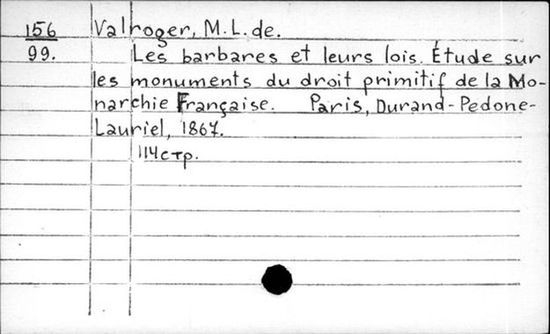 156 Valroger, M. L. de.
99. Les barbares et leurs lois. Étude sur
les monuments du droit primitif de la Mo-
narchie Française. Paris, Durand-Pedone-
Lauriel, 1867.
114 стр.